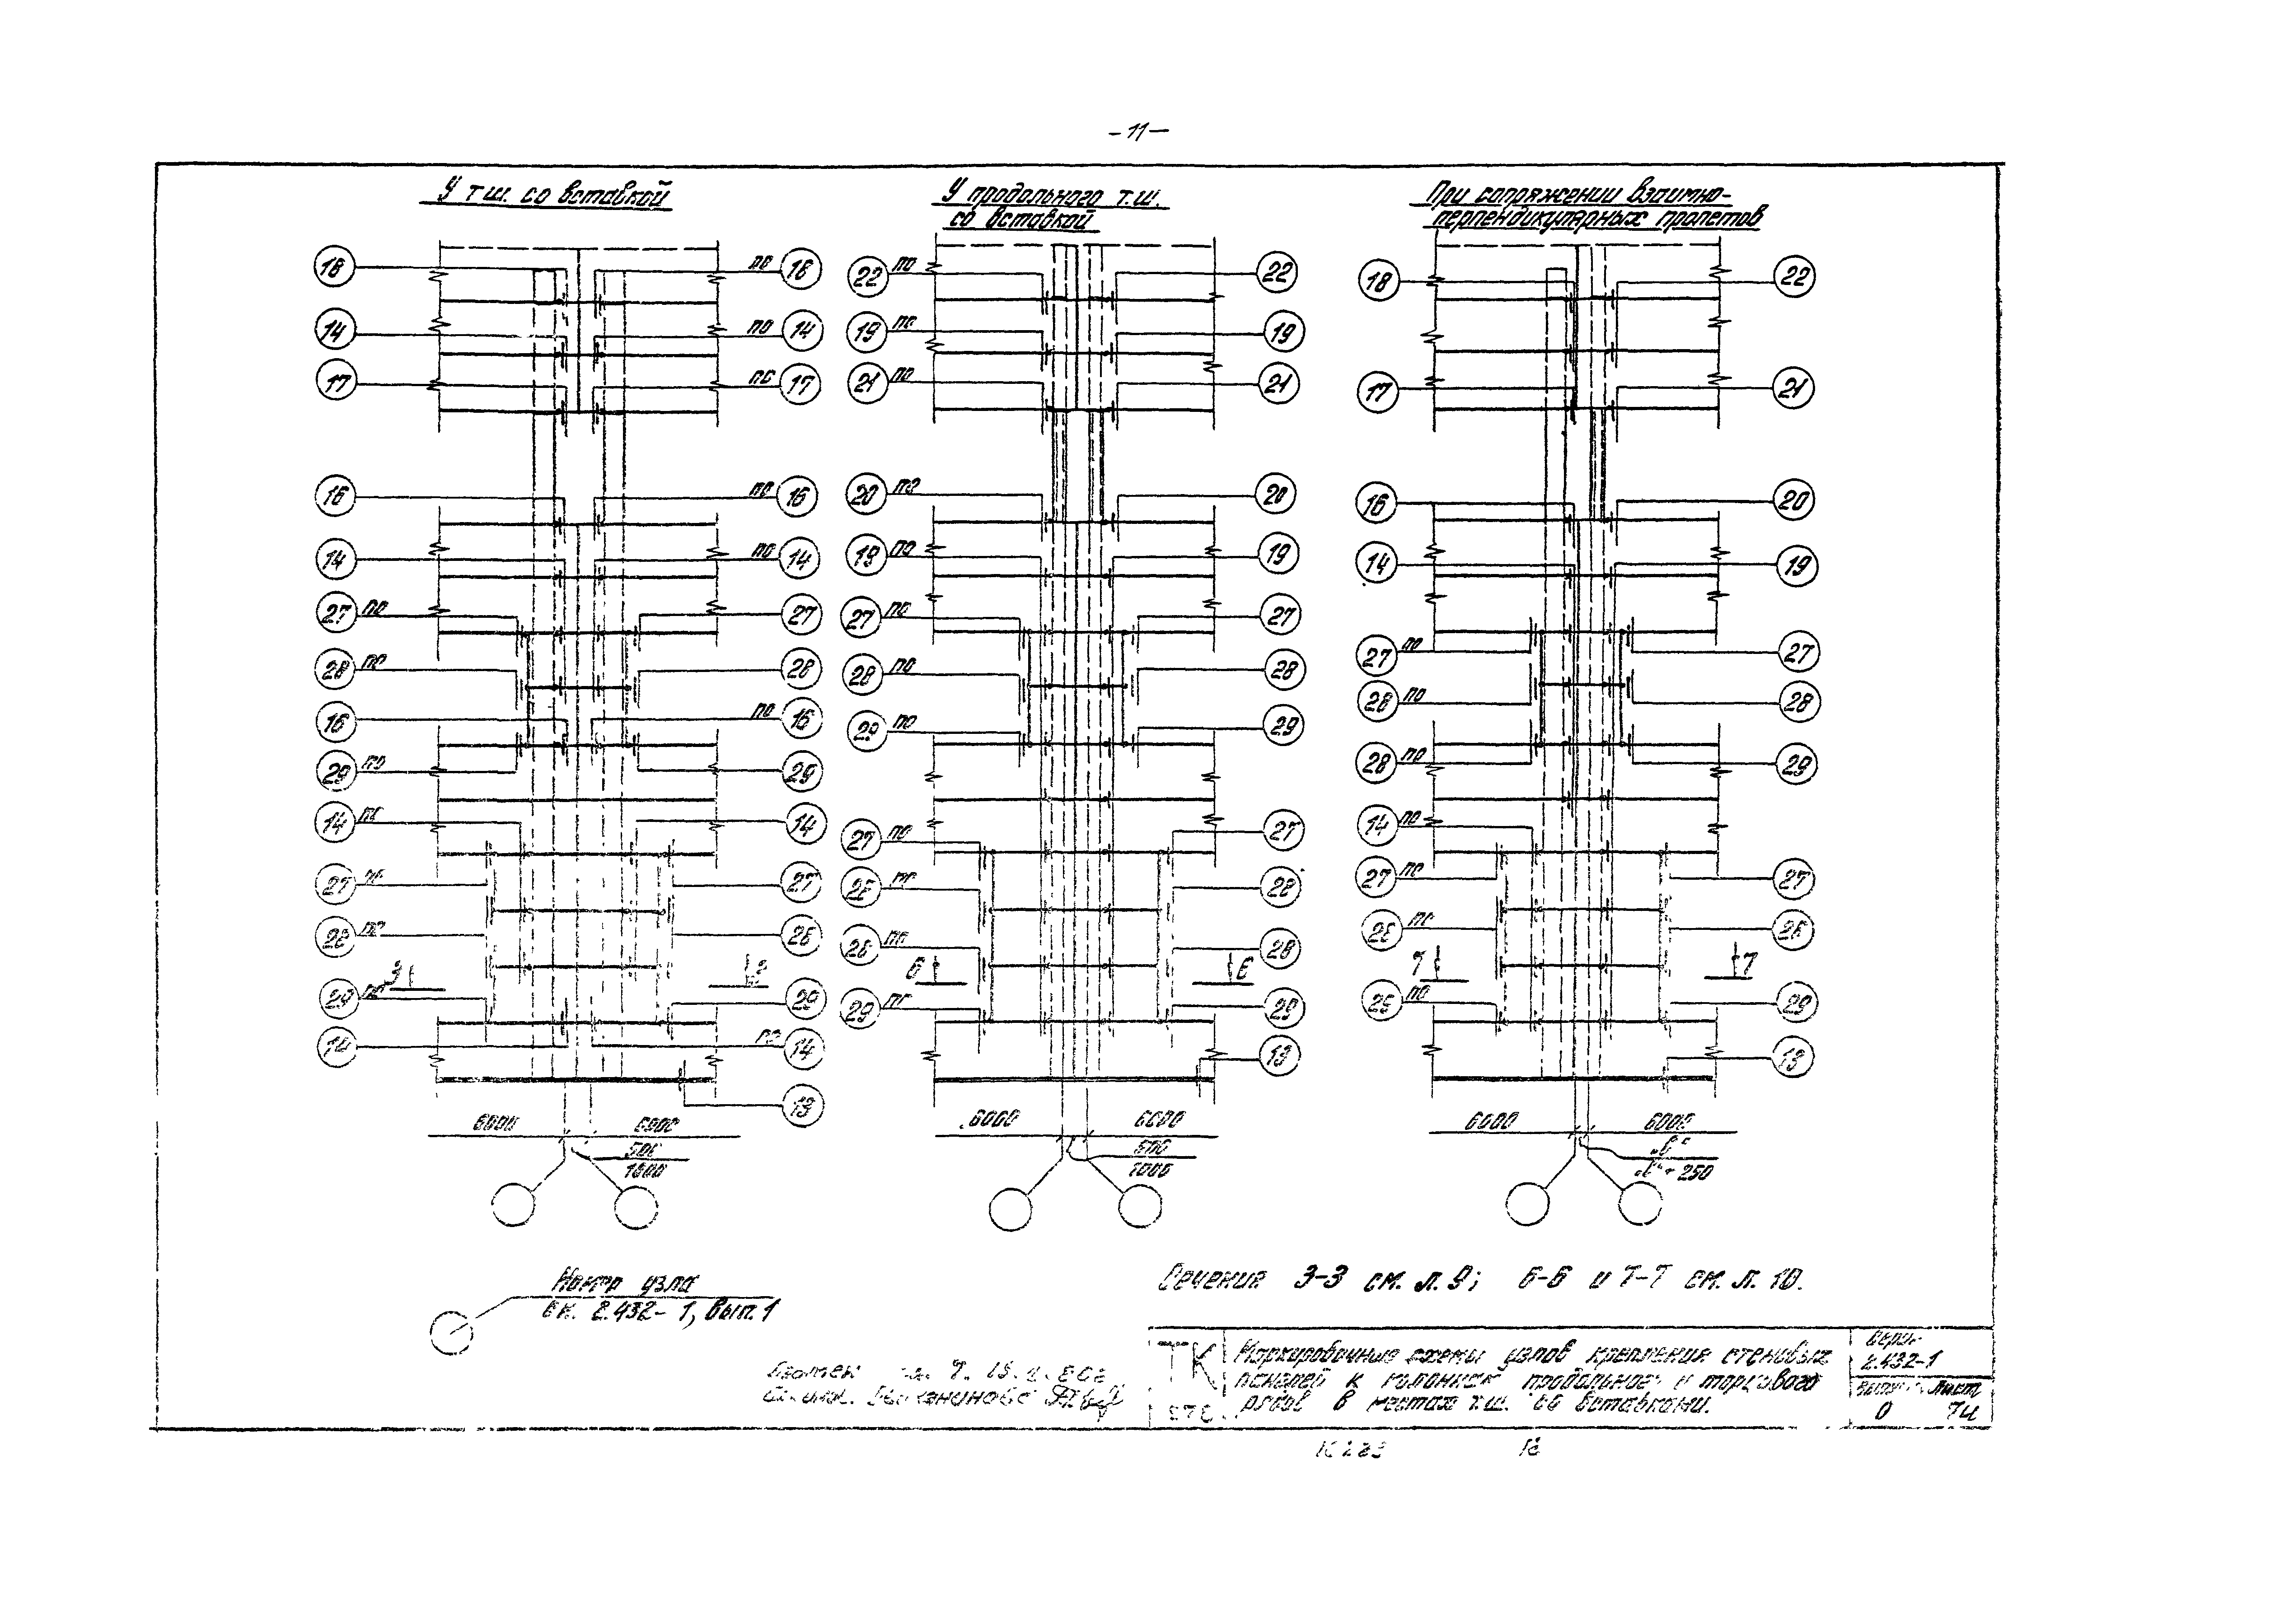 -11-
У т.ш. со вставкой
У продольного т.ш.
со вставкой
При сопряжении взаимно-
перпендикулярных пролетов
18
по 18
14
по 14
17
по 17
16
по 16
14
по 14
27 по
27
28 по
28
16
по 16
29 по
29
14 по
14
27 по
27
28 по
28
3
3
29 по
29
14
по 14
13
6000
6000
500
1000
22 по
22
19 по
19
21 по
21
20 по
20
19 по
19
27 по
27
28 по
28
29 по
29
27 по
27
28 по
28
28 по
28
6
6
29 по
29
13
6000
6000
500
1000
18
22
17
21
16
20
14
19
27 по
27
28 по
28
28 по
29
14 по
27 по
27
28 по
28
7
7
29 по
29
13
6000
6000
„В“
„В“+250
Номер узла
см. 2.432-1, вып.1
Сечения 3-3 см. л. 9; 6-6 и 7-7 см. л. 10.
ТК
Маркировочные схемы узлов крепления стеновых
панелей к колоннам продольного и торцового
рядов в местах т.ш. со вставками.
Серия
2.432-1
Выпуск Лист
0 74